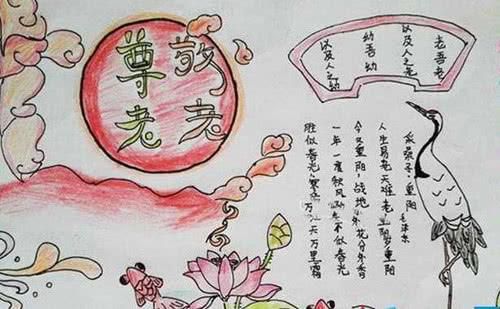 敬老
尊老
老吾老
以及人之老
幼吾幼
以及人之幼
采桑子·重阳
毛泽东
人生易老天难老 岁岁重阳
今又重阳,战地 花分外香
一年一度秋风劲 不似春光
胜似春光,寥 天万里霜